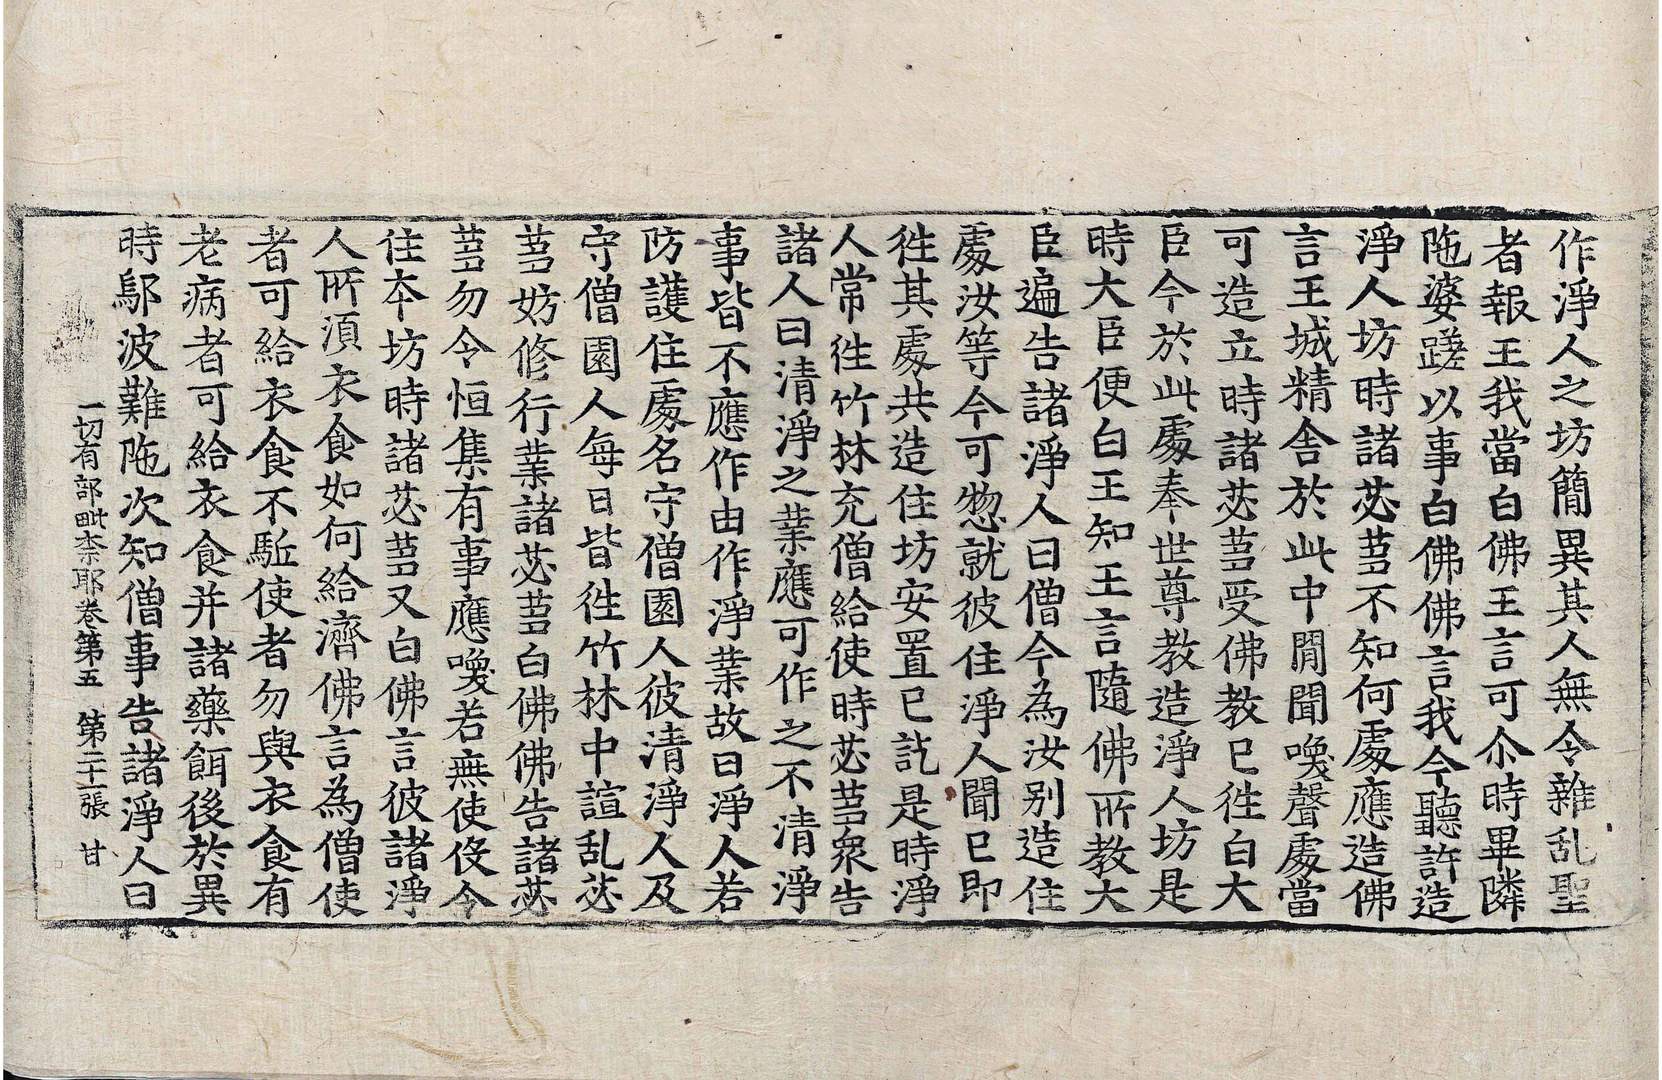 作淨人之坊簡異其人無令雜乱聖
者報王我當白佛王言可尒時畢隣
陁婆蹉以事白佛佛言我今聽許造
淨人坊時諸苾芻不知何處應造佛
言王城精舍於此中閒聞喚聲處當
可造立時諸苾芻受佛教已徃白大
臣今於此處奉世尊教造淨人坊是
時大臣便白王知王言隨佛所教大
臣遍告諸淨人曰僧今為汝别造住
處汝等今可惣就彼住淨人聞已即
徃其處共造住坊安置已訖是時淨
人常徃竹林充僧給使時苾芻衆告
諸人曰清淨之業應可作之不清淨
事皆不應作由作淨業故曰淨人若
防護住處名守僧園人彼清淨人及
守僧園人每日皆徃竹林中諠乱苾
芻妨修行業諸苾芻白佛佛告諸苾
芻勿令恒集有事應喚若無使伇令
住夲坊時諸苾芻又白佛言彼諸淨
人所湏衣食如何給濟佛言為僧使
者可給衣食不駈使者勿與衣食有
老病者可給衣食并諸藥餌後於異
時鄔波難陁次知僧事告諸淨人曰
一切有部毗柰耶卷第五 第二十一張 甘